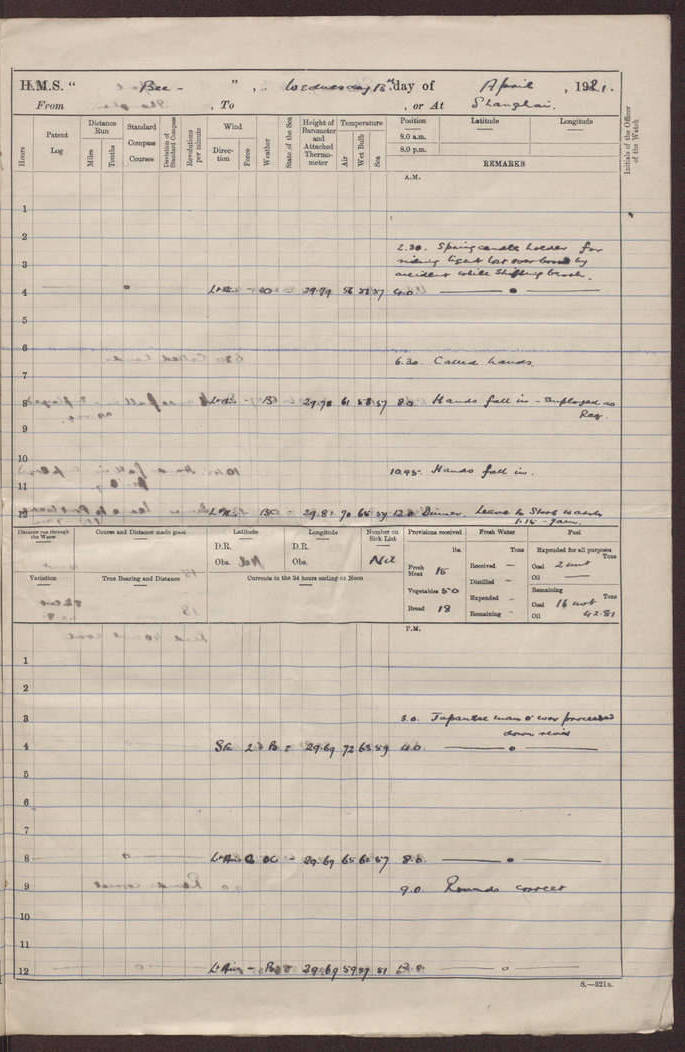 H.M.S. " Bee - ", Wednesday 13th day of April, 1921.
From , To , or At Shanghai.
Hours
Patent Log
Distance Run
Miles
Tenths
Standard Compass Courses
Deviation of Standard Compass
Revolutions per minute
Wind
Direction
Force
Weather
State of the Sea
Height of Barometer and Attached Thermometer
Temperature
Air
Wet Bulb
Sea
Position
Latitude
Longitude
8.0 a.m.
8.0 p.m.
REMARKS
Initials of the Officer of the Watch
A.M.
1
2
2.30. Spring candle holder for
3 riding light lost over board by
accident while shifting berth.
4 29.79 56 57 4.0
5
6
6.30. Called hands.
7
8 29.78 61 58 57 8.0 Hands fall in - Employed as
Req.
9
10
10.45. Hands fall in.
11
12 29.8 70 12.0 Dinner. Leave to Stbd watch
1.15 - 7am.
Distance run through the Water
Course and Distance made good
Latitude
D.R.
Obs.
Longitude
D.R.
Obs.
Number on Sick List
Nil
Variation
True Bearing and Distance
Currents in the 24 hours ending at Noon
Provisions received
lbs.
Fresh Meat 15
Vegetables 50
Bread 18
Fresh Water
Tons
Received -
Distilled -
Expended -
Remaining -
Fuel
Expended for all purposes
Tons
Coal 2 cwt
Oil
Remaining
Tons
Coal 16 cwt
Oil 42.81
P.M.
1
2
3 3.0. Japanese man o' war proceeded
down river
4 SE 29.69 72 65 59 4.0
5
6
7
8 29.69 65 60 57 8.0
9 9.0. Rounds correct
10
11
12 Lt Airs - 29.69 59 57
S.—321a.